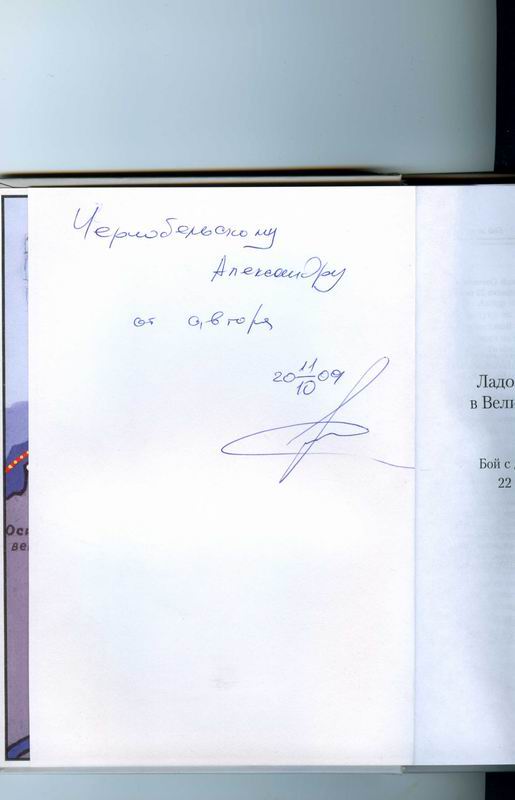 Чернобельскому
Александру
от автора
20 11/10 09
Ладо
в Вели
Бой с
22
Ос
ве